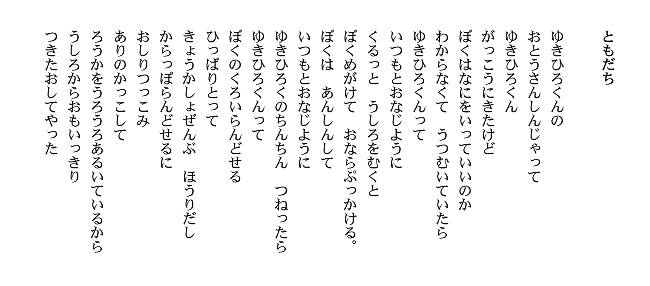 ともだち
ゆきひろくんの
おとうさんしんじゃって
ゆきひろくん
がっこうにきたけど
ぼくはなにをいっていいのか
わからなくて　うつむいていたら
ゆきひろくんって
いつもとおなじように
くるっと　うしろをむくと
ぼくめがけて　おならぶっかける。
ぼくは　あんしんして
いつもとおなじように
ゆきひろくのちんちん　つねったら
ゆきひろくんって
ぼくのくろいらんどせる
ひっぱりとって
きょうかしょぜんぶ　ほうりだし
からっぽらんどせるに
おしりつっこみ
ありのかっこして
ろうかをうろうろあるいているから
うしろからおもいっきり
つきたおしてやった